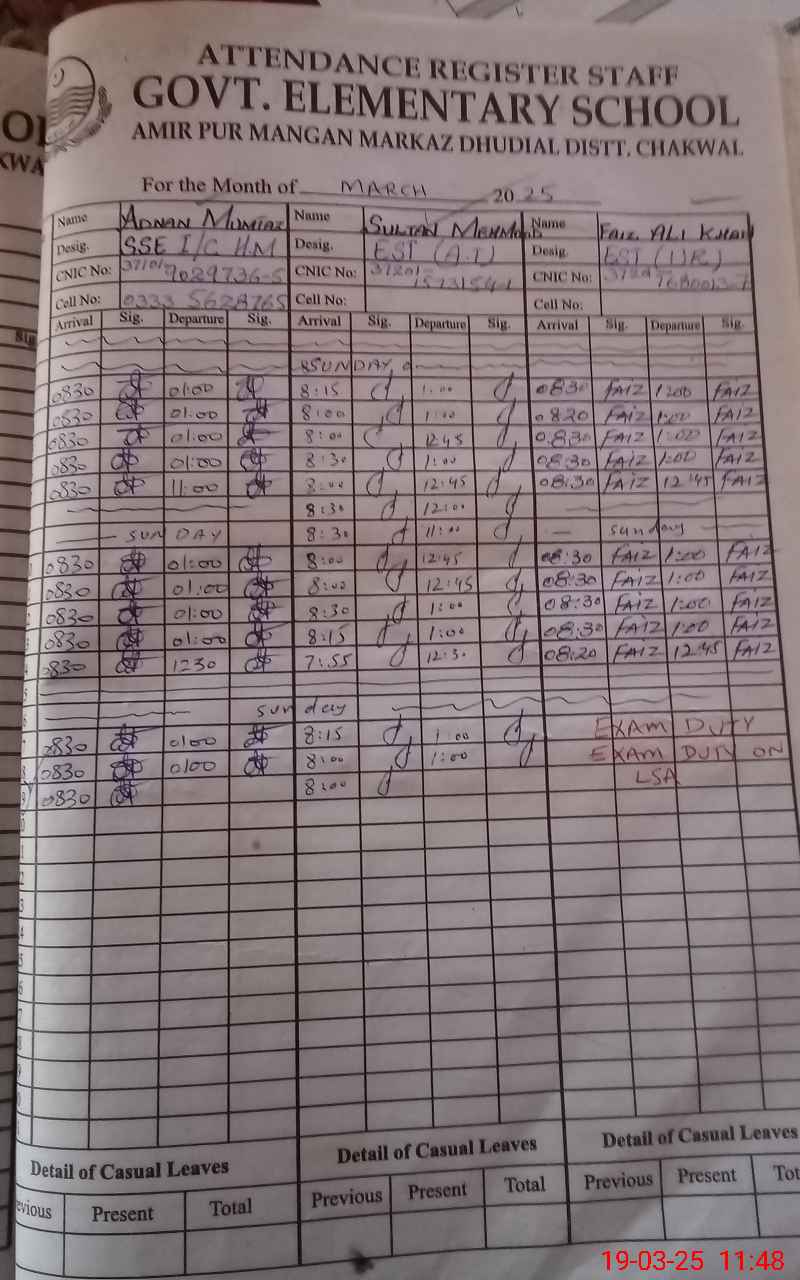 ATTENDANCE REGISTER STAFF
GOVT. ELEMENTARY SCHOOL
AMIR PUR MANGAN MARKAZ DHUDIAL DISTT. CHAKWAL
For the Month of MARCH 2025
Name ADNAN MUMTAZ Name SULTAN MEHMOOD Name FAIZ ALI KHAN
Desig. SSE I/C HM Desig. EST (A.T) Desig. EST (UR)
CNIC No: CNIC No: CNIC No:
Cell No: 0333 5628765 Cell No: Cell No:
Arrival Sig. Departure Sig. Arrival Sig. Departure Sig. Arrival Sig. Departure Sig.
SUNDAY
0830 01:00 8:15 1:00 0830 FAIZ 1:00 FAIZ
0830 01:00 8:00 1:00 0820 FAIZ 1:00 FAIZ
0830 01:00 8:00 1245 0830 FAIZ 1:00 FAIZ
0830 01:00 8:30 1:00 08:30 FAIZ 1:00 FAIZ
0830 11:00 8:00 12:45 08:30 FAIZ 12:45 FAIZ
8:30 12:00
SUNDAY 8:30 11:00 sunday
0830 01:00 8:00 12:45 08:30 FAIZ 1:00 FAIZ
0830 01:00 8:00 12:45 08:30 FAIZ 1:00 FAIZ
0830 01:00 8:30 1:00 08:30 FAIZ 1:00 FAIZ
0830 01:00 8:15 1:00 08:30 FAIZ 1:00 FAIZ
0830 1230 7:55 12:30 08:20 FAIZ 12:45 FAIZ
sunday
0830 0100 8:15 1:00 EXAM DUTY
0830 0100 8:00 1:00 EXAM DUTY ON
0830 8:00 LSA
Detail of Casual Leaves Detail of Casual Leaves Detail of Casual Leaves
Previous Present Total Previous Present Total Previous Present Tot
19-03-25 11:48